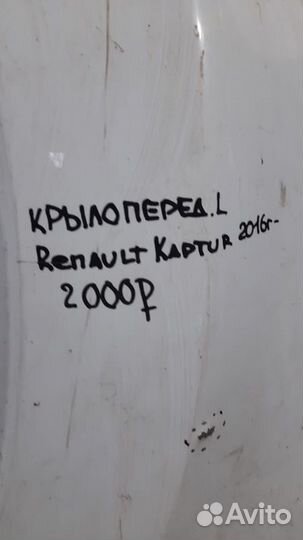 КРЫЛО ПЕРЕД. L
Renault Kaptur 2016г-
2000₽
Avito